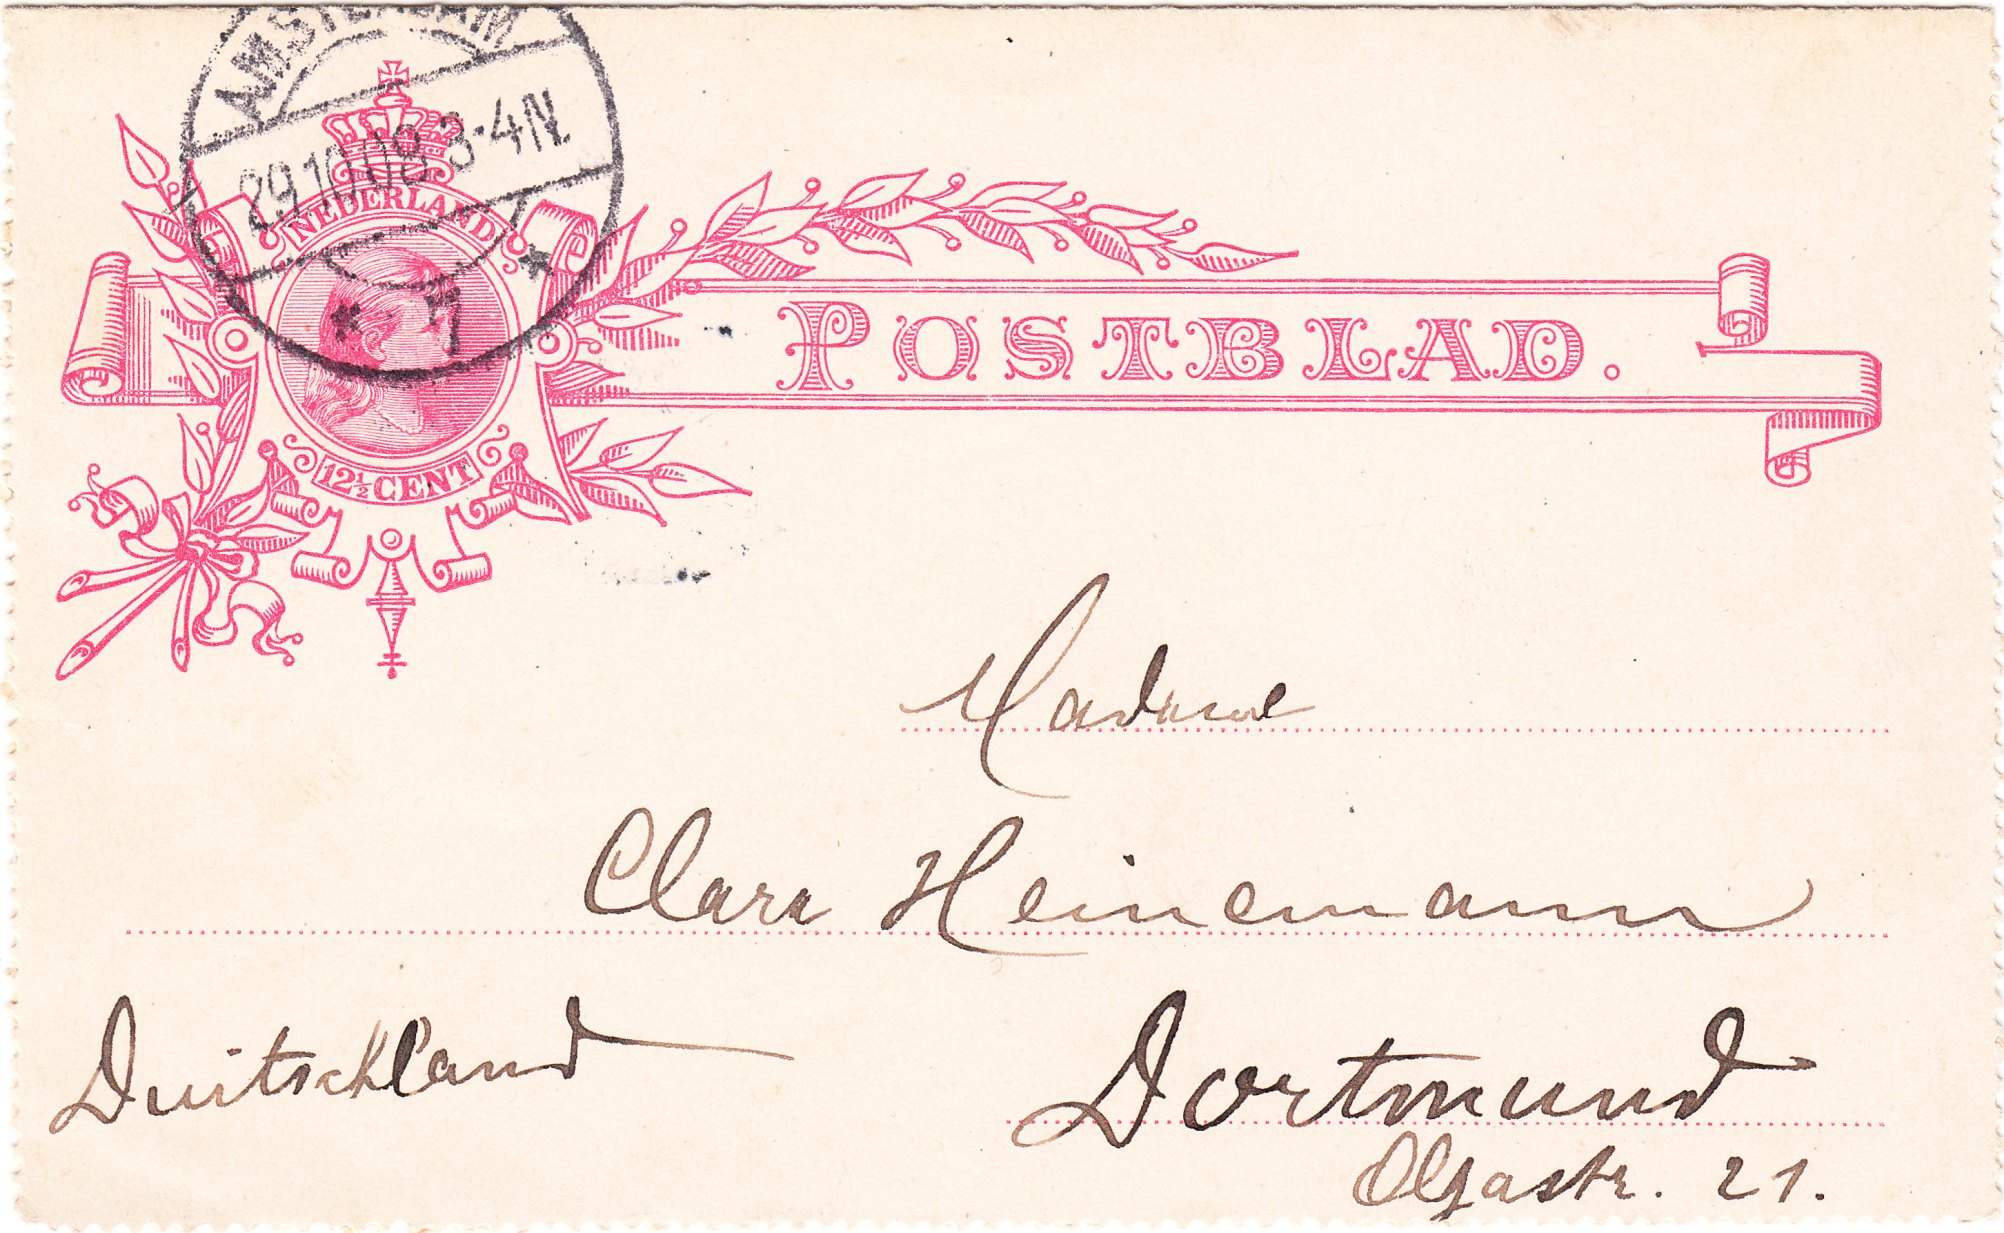 AMSTERDAM
29.10.08 3-4N
* 7 *
NEDERLAND
12½ CENT
POSTBLAD.
Madame
Clara Heinemann
Duitschland
Dortmund
Olgastr. 21.